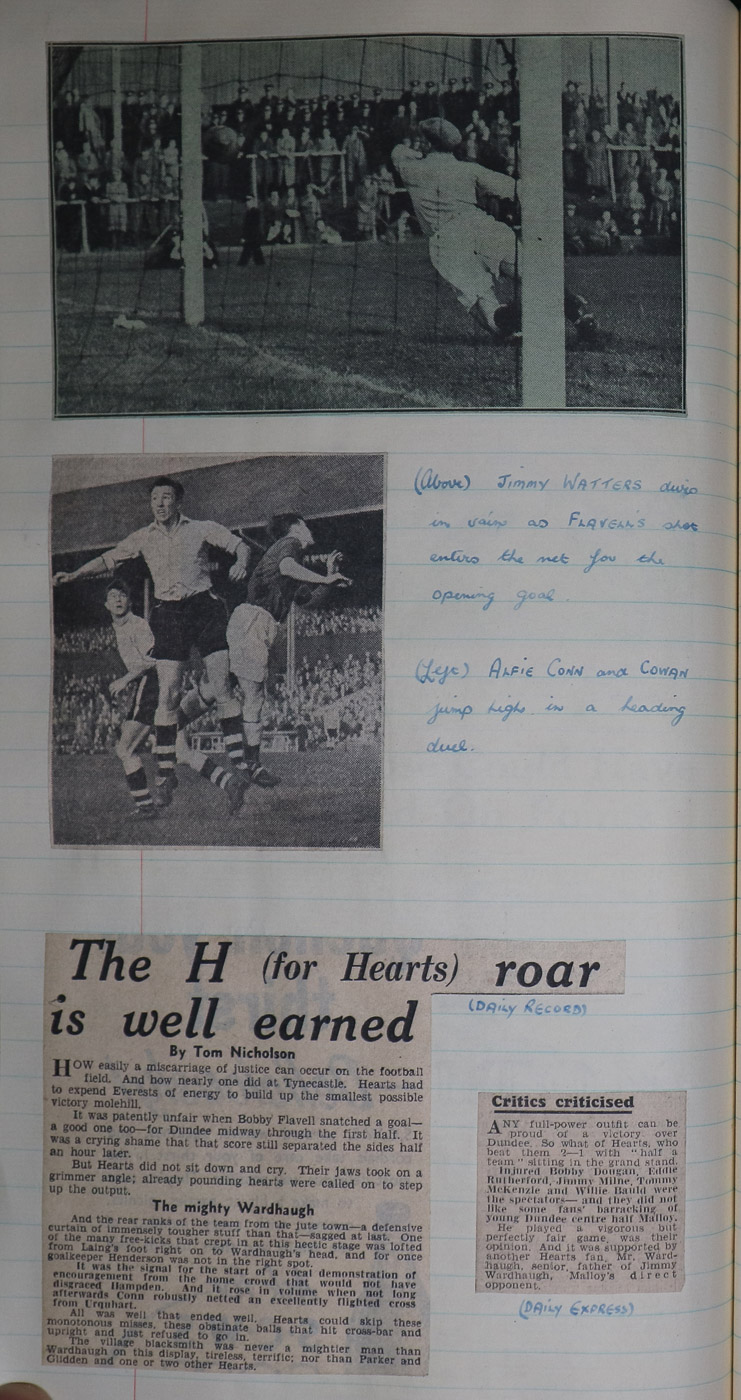 (Above) JIMMY WATTERS dives
in vain as FLAVELL'S shot
enters the net for the
opening goal.
(Left) ALFIE CONN and COWAN
jump high in a heading
duel.
The H (for Hearts) roar
is well earned
(DAILY RECORD)
By Tom Nicholson
HOW easily a miscarriage of justice can occur on the football
field. And how nearly one did at Tynecastle. Hearts had
to expend Everests of energy to build up the smallest possible
victory molehill.
It was patently unfair when Bobby Flavell snatched a goal—
a good one too—for Dundee midway through the first half. It
was a crying shame that that score still separated the sides half
an hour later.
But Hearts did not sit down and cry. Their jaws took on a
grimmer angle; already pounding hearts were called on to step
up the output.
The mighty Wardhaugh
And the rear ranks of the team from the jute town—a defensive
curtain of immensely tougher stuff than that—sagged at last. One
of the many free-kicks that crept in at this hectic stage was lofted
from Laing's foot right on to Wardhaugh's head, and for once
goalkeeper Henderson was not in the right spot.
It was the signal for the start of a vocal demonstration of
encouragement from the home crowd that would not have
disgraced Hampden. And it rose in volume when not long
afterwards Conn robustly netted an excellently flighted cross
from Urquhart.
All was well that ended well. Hearts could skip these
monotonous misses, these obstinate balls that hit cross-bar and
upright and just refused to go in.
The village blacksmith was never a mightier man than
Wardhaugh on this display, tireless, terrific; nor than Parker and
Glidden and one or two other Hearts.
Critics criticised
ANY full-power outfit can be
proud of a victory over
Dundee. So what of Hearts, who
beat them 2—1 with "half a
team" sitting in the grand stand.
Injured Bobby Dougan, Eddie
Rutherford, Jimmy Milne, Tommy
McKenzie and Willie Bauld were
the spectators—and they did not
like some fans' barracking of
young Dundee centre half Malloy.
He played a vigorous but
perfectly fair game, was their
opinion. And it was supported by
another Hearts fan, Mr. Ward-
haugh, senior, father of Jimmy
Wardhaugh, Malloy's direct
opponent.
(DAILY EXPRESS)